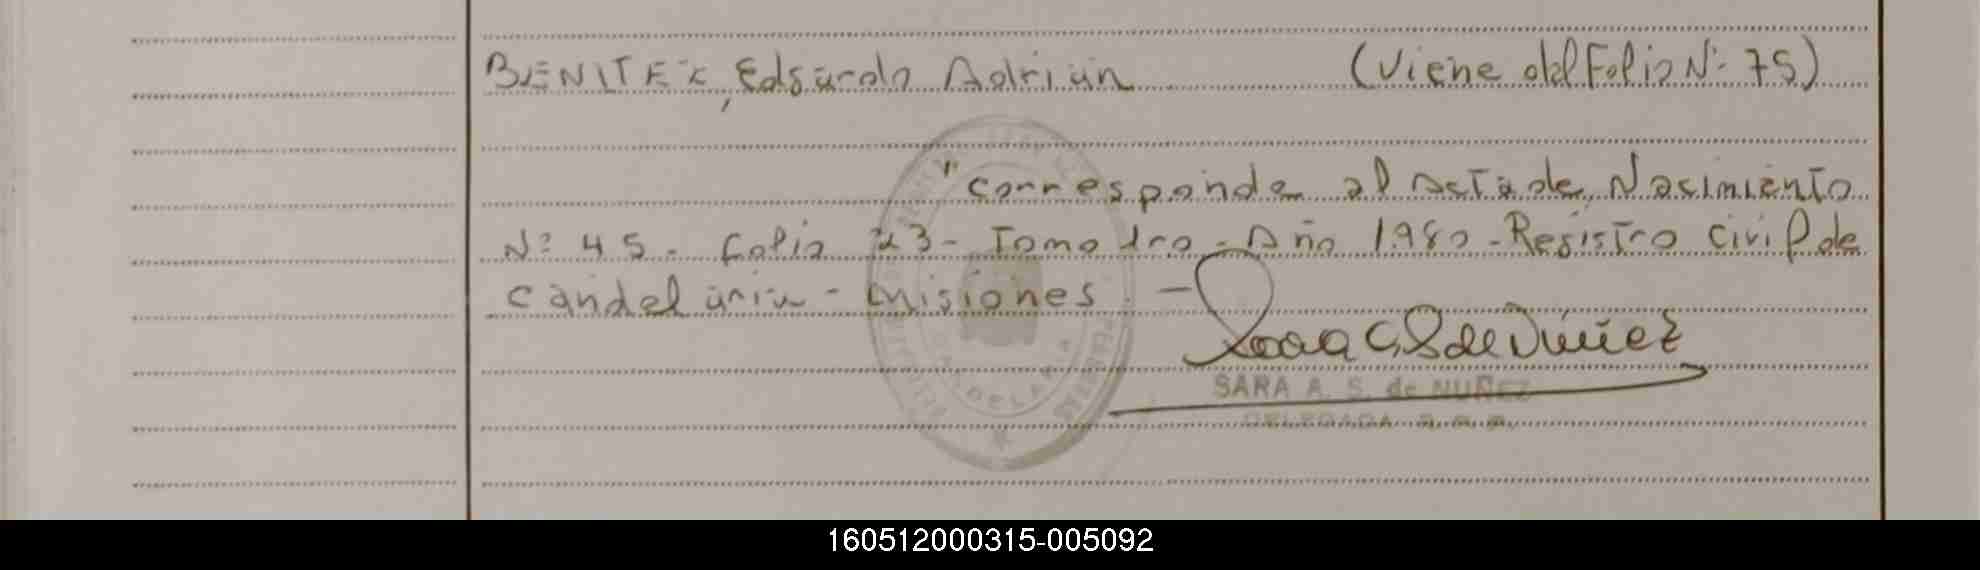 BENITEZ, Edgardo Adrian (Viene del Folio Nº 75)
"Corresponde al Acta de Nacimiento
Nº 45 - Folio 23 - Tomo 1ro - Año 1980 - Registro Civil de
Candelaria - Misiones. -
SARA A. S. de NUÑEZ
DELEGADA
CANDELARIA
160512000315-005092